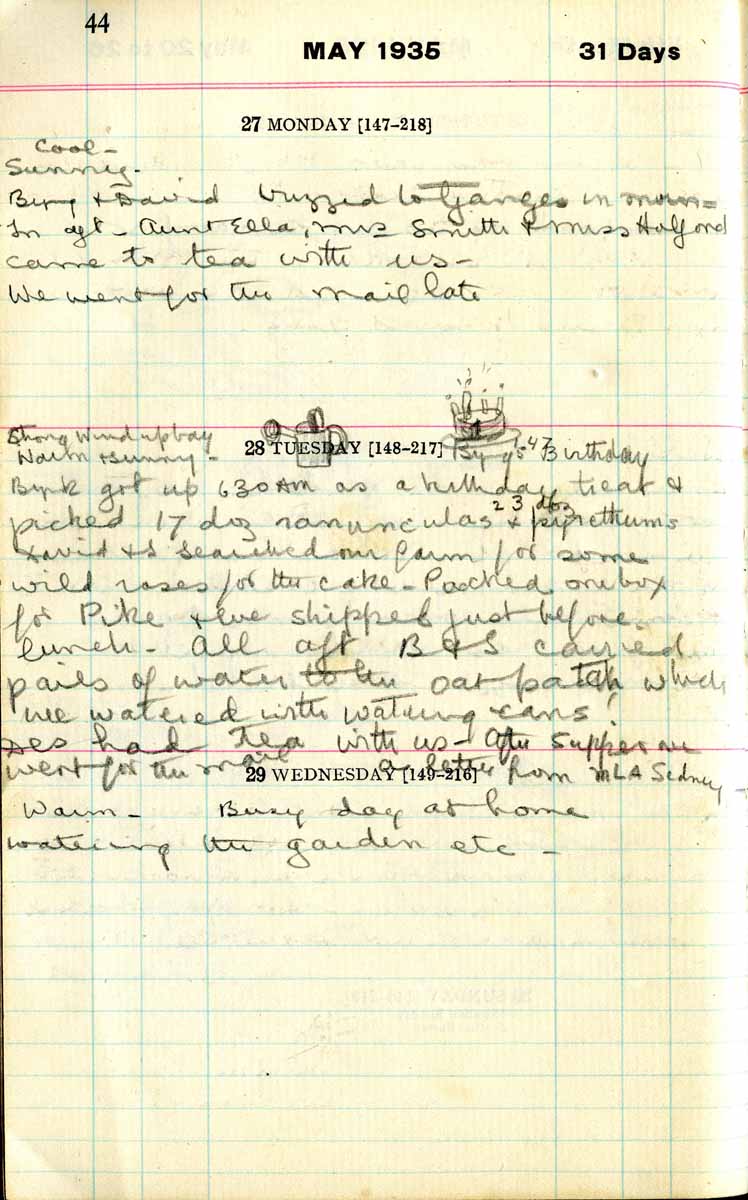 44
MAY 1935 31 Days
27 MONDAY [147–218]
Cool –
Sunny –
Byng & David buzzed to Ganges in morn –
In aft – Aunt Ella, Mrs Smith & Miss Halford
came to tea with us –
We went for the mail late
Strong wind up bay
Warm & sunny –
28 TUESDAY [148–217] Byng's 47 Birthday
got up 630 AM as a birthday treat &
picked 17 doz ranunculas & 23 doz pyrethums
David & I searched our farm for some
wild roses for the cake – Packed one box
for Pike & we shipped just before
lunch – All aft B & I carried
pails of water to the oat patch which
we watered with watering cans!
Des had tea with us – After supper we
went for the mail a letter from MLA Sidney –
29 WEDNESDAY [149–216]
Warm – Busy day at home
watering the garden etc –